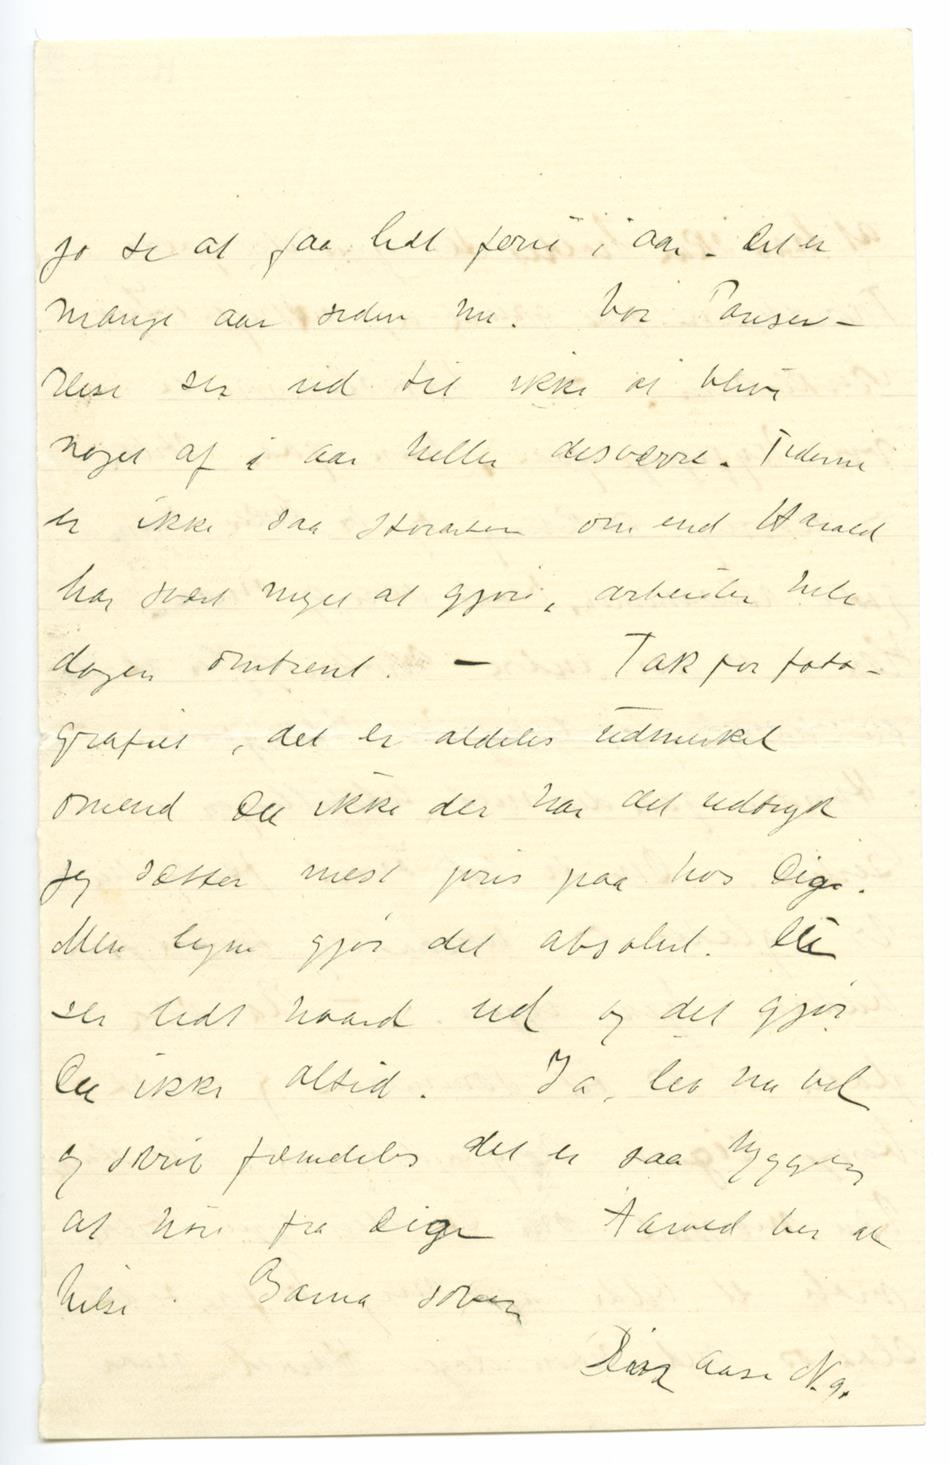 jo se at faa lidt ferie i aar. Det er
mange aar siden nu. Vor Pariser-
reise ser ud til ikke at blive
noget af i aar heller desværre. Tiderne
er ikke saa om end Harald
har svært meget at gjøre, arbeider hele
dagen omtrent. — Tak for foto-
grafiet, det er aldeles udmerket
omend Du ikke der har det udtryk
jeg sætter mest pris paa hos Dig.
Men ligne gjør det absolut. Du
ser lidt haard ud og det gjør
Du ikke altid. Ja, lev nu vel
og skriv fremdeles det er saa hyggelig
at høre fra Dig Harald ber at
hilse. Barna sover
Din Aase N.g.